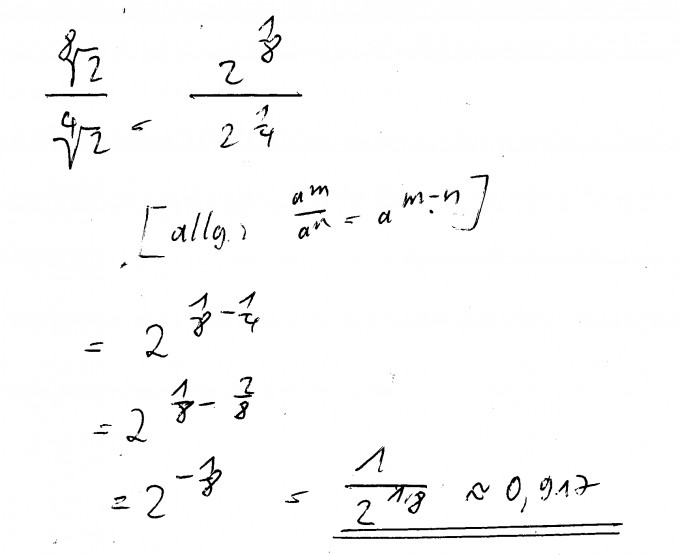 ⁸√2 / ⁴√2 = 2^(1/8) / 2^(1/4)
[allg.: a^m / a^n = a^(m-n)]
= 2^(1/8 - 1/4)
= 2^(1/8 - 2/8)
= 2^(-1/8) = 1 / 2^(1/8) ≈ 0,917